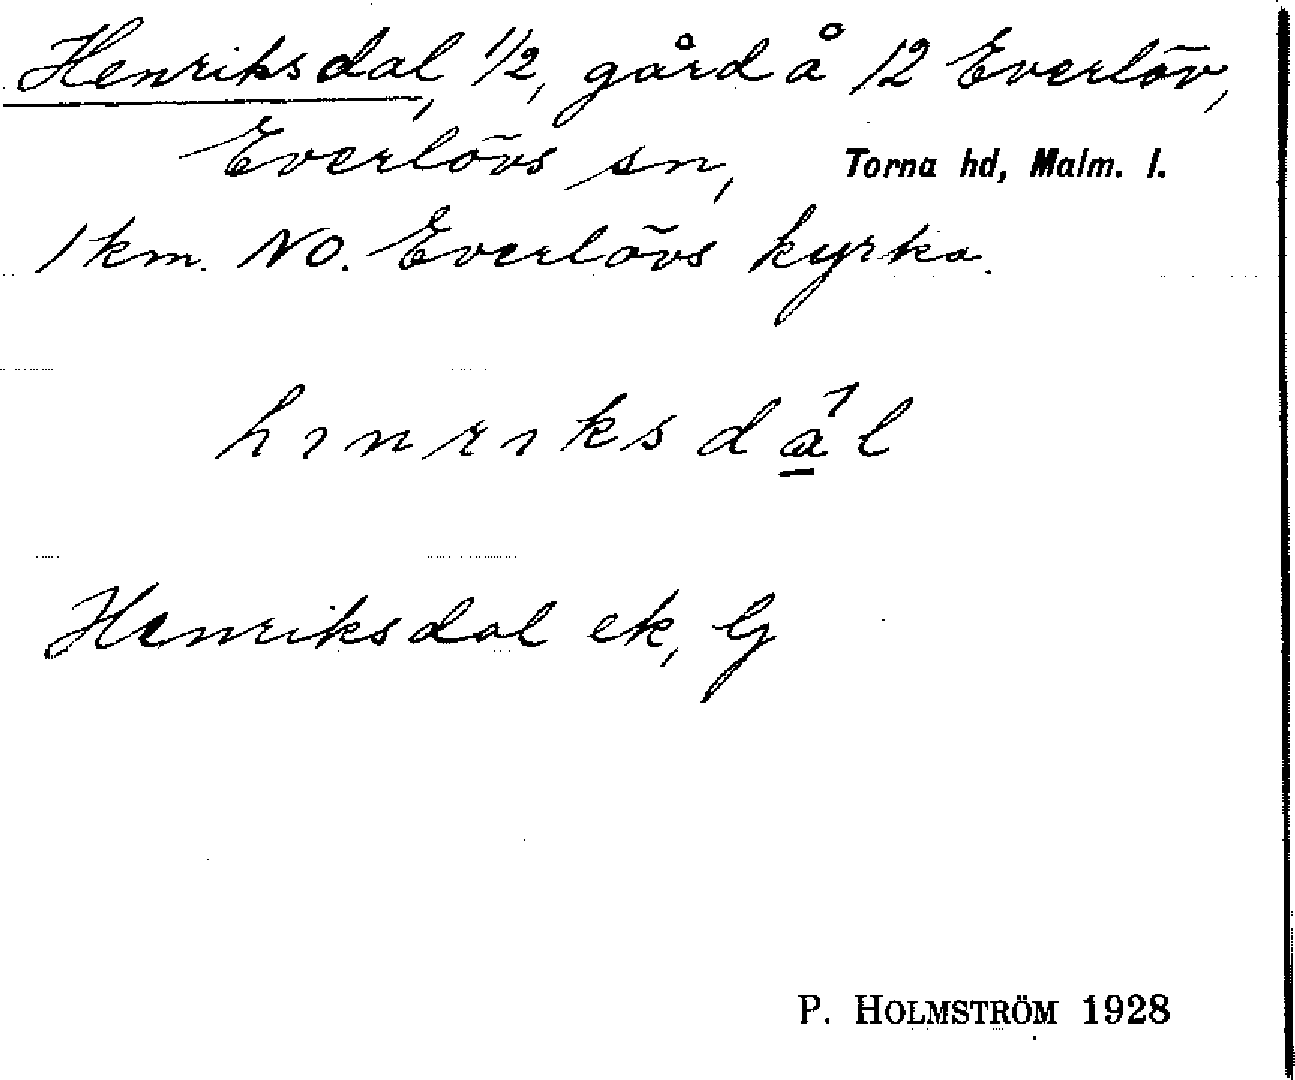 Henriksdal, 1/2, gård å 12 Everlöv,
Everlövs sn, Torna hd, Malm. l.
1 km. NO. Everlövs kyrka.
hınrıksdál
Henriksdal ek, G
P. HOLMSTRÖM 1928